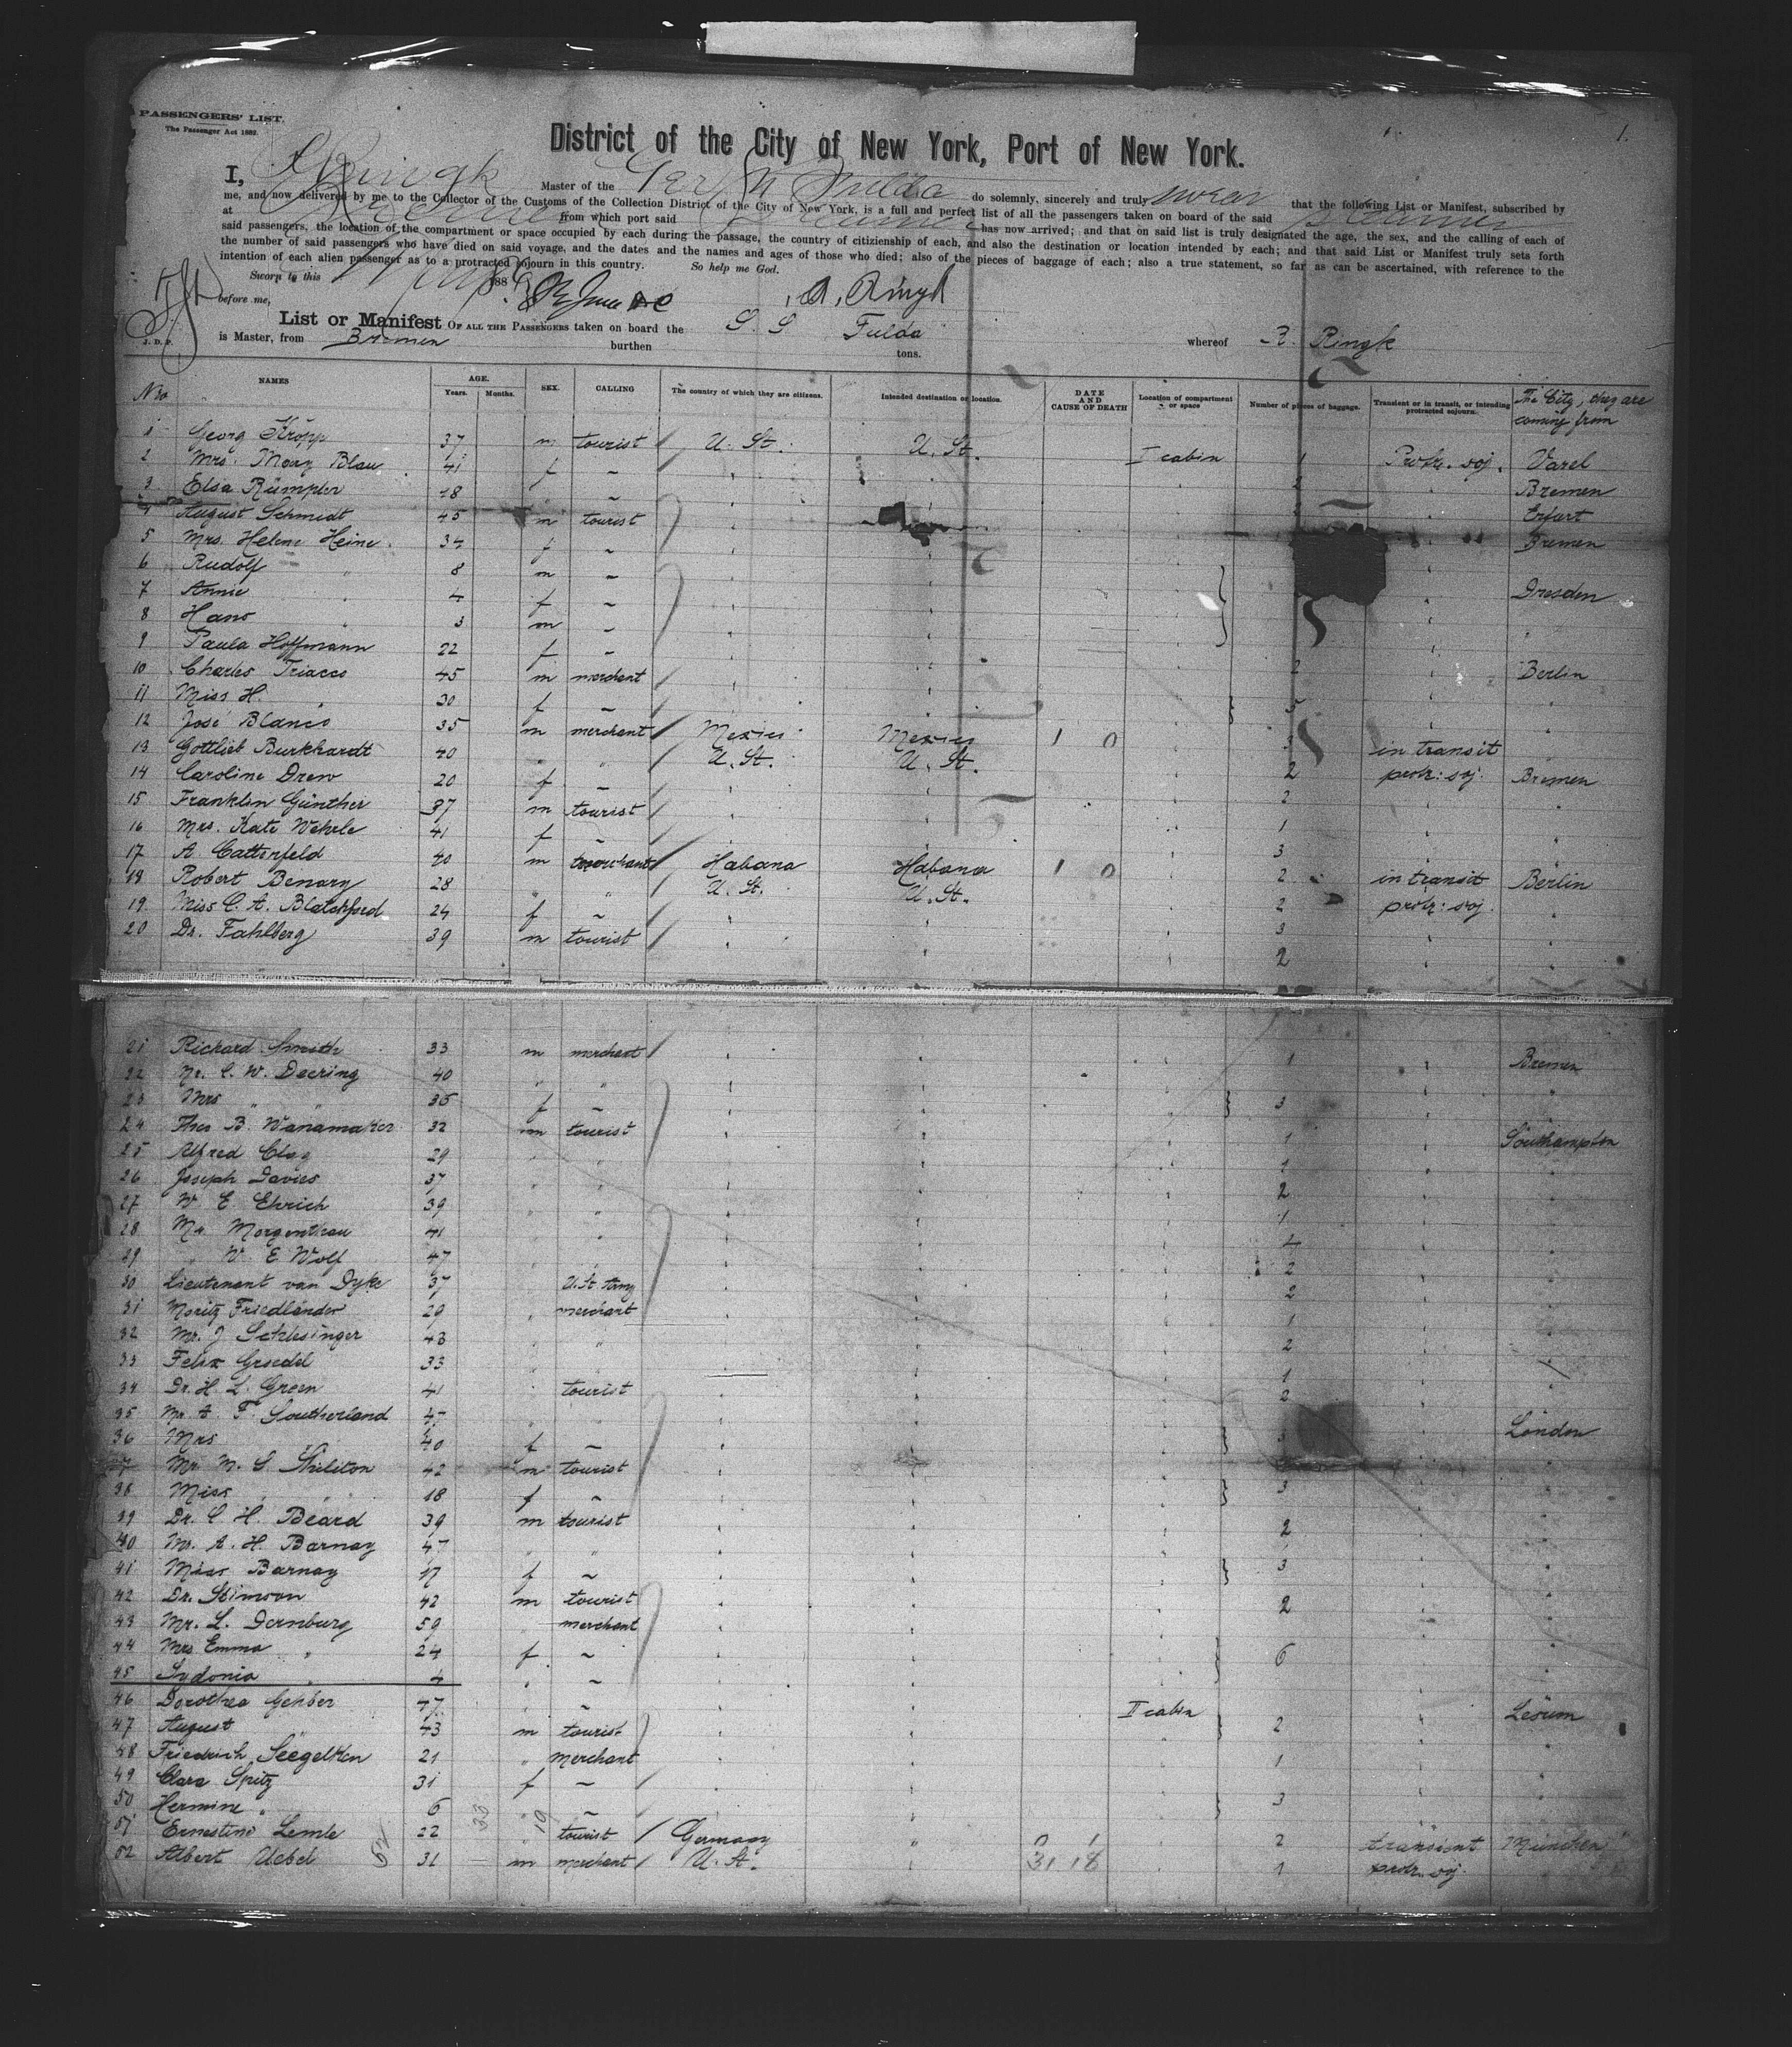 PASSENGERS' LIST.
The Passenger Act 1882.
1.
District of the City of New York, Port of New York.
I, R Ringk Master of the Ger Fulda do solemnly, sincerely and truly swear that the following List or Manifest, subscribed by
me, and now delivered by me to the Collector of the Customs of the Collection District of the City of New York, is a full and perfect list of all the passengers taken on board of the said Steamer
at Bremen from which port said Steamer has now arrived; and that on said list is truly designated the age, the sex, and the calling of each of
said passengers, the location of the compartment or space occupied by each during the passage, the country of citizienship of each, and also the destination or location intended by each; and that said List or Manifest truly sets forth
the number of said passengers who have died on said voyage, and the dates and the names and ages of those who died; also of the pieces of baggage of each; also a true statement, so far as can be ascertained, with reference to the
intention of each alien passenger as to a protracted sojourn in this country. So help me God.
Sworn to this 188
before me, R. Ringk
J. D. P.
List or Manifest OF ALL THE PASSENGERS taken on board the S. S. Fulda whereof R. Ringk
is Master, from Bremen burthen tons.
Nro NAMES AGE. Years. Months. SEX. CALLING The country of which they are citizens. Intended destination or location. DATE AND CAUSE OF DEATH Location of compartment or space Number of pieces of baggage. Transient or in transit, or intending protracted sojourn. The City, they are coming from
1 Georg Kropp 37 m tourist U. St. U. St. I cabin 1 Protr. soj. Varel
2 Mrs. Mary Blau 41 f ~ " " " 2 " Bremen
3 Elsa Rümpler 18 " ~ " " " 2 " Erfurt
4 August Schmidt 45 m tourist " " " " Bremen
5 Mrs. Helene Heine 34 f ~ " " "
6 Rudolf " 8 m ~ " " " " Dresden
7 Annie " 4 f ~ " " " "
8 Hans " 3 m ~ " " " " "
9 Paula Hoffmann 22 f ~ " " " 2 " Berlin
10 Charles Triacco 45 m merchant " " " "
11 Miss H. " 30 f ~ " " " 5 " "
12 José Blanco 35 m merchant Mexico Mexico 1 0 " 3 in transit "
13 Gottlieb Burkhardt 40 " " U. St. U. St. " 2 protr: soj. Bremen
14 Caroline Drew 20 f ~ " " " 2 " "
15 Franklin Günther 37 m tourist " " " 1 "
16 Mrs. Kate Wehrle 41 f ~ " " " 3 " "
17 A. Catterfeld 40 m merchant Habana Habana 1 0 " 2 in transit Berlin
18 Robert Benary 28 " " U. St. U. St. " 2 protr: soj. "
19 Miss C. A. Blatchford 24 f ~ " " " 3 " "
20 Dr. Fahlberg 39 m tourist " " " 2 " "
21 Richard Smith 33 m merchant " " " 1 " Bremen
22 Mr. C. W. Deering 40 " " " " " "
23 Mrs " " 35 f ~ " " " 3 " "
24 Ths B. Wanamaker 32 m tourist " " " 1 " Southampton
25 Alfred Clegg 29 " " " " " 1 " "
26 Joseph Davies 37 " " " " " 2 " "
27 W E Ehrich 39 " " " " " 1 " "
28 Mr Morgenthau 41 " " " " " 4 " "
29 " W. E Wolf 47 " " " " " 2 " "
30 Lieutenant van Dyke 37 " U. St Army " " " 2 " "
31 Moritz Friedländer 29 " merchant " " " 1 " "
32 Mr. J Schlesinger 43 " " " " " 2 " "
33 Felix 33 " " " " 1 " "
34 Dr. H. L. Green 41 " tourist " " " 2 " "
35 Mr A. F. Southerland 47 " " " " " " London
36 Mrs " 40 f ~ " " " 3 " "
37 Mr M. S. 42 m tourist " " " " "
38 Miss " 18 f ~ " " " 3 " "
39 Dr. C H. Beard 39 m tourist " " " 2 " "
40 Mr. A. H. Barnay 47 " " " " " " "
41 Miss Barnay 17 f ~ " " " 3 " "
42 Dr. Stimson 42 m tourist " " " 2 " "
43 Mr. L. Dernburg 59 " merchant " " " " "
44 Mrs Emma " 24 f ~ " " " 6 " "
45 Sydonia " 4 " ~ " " " " "
46 Dorothea Gehber 47 " ~ " " II cabin " Lesum
47 August " 43 m tourist " " " 2 " "
48 Friedrich Seegelken 21 " merchant " " " 1 " "
49 Clara Spitz 31 f ~ " " " " "
50 Hermine " 6 " ~ " " " 3 " "
51 Ernestine Lemle 22 " tourist Germany " 0 1 " 2 transient München
52 Albert Uebel 31 m merchant U. St. " " 1 protr. soj "
52 33 19 31 18